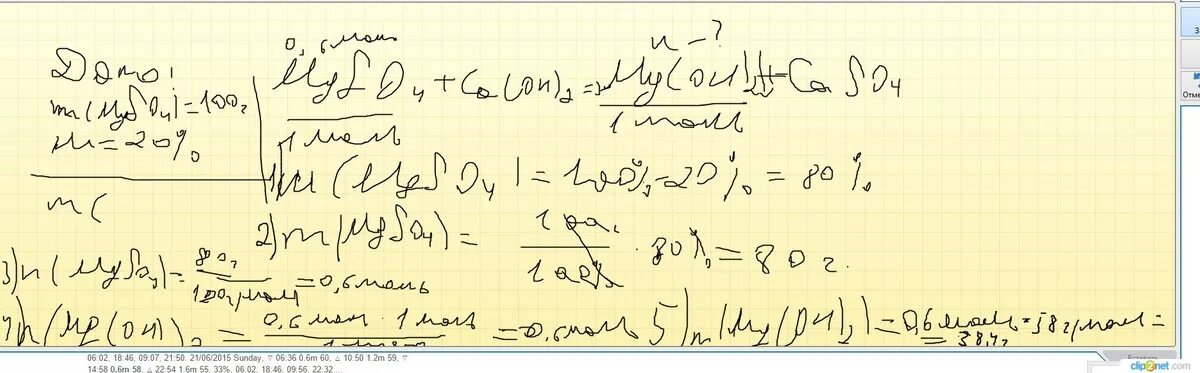 Дано:
m(MgSO₄)=100г
w=20%
m(
0,6моль
n-?
MgSO₄+Ca(OH)₂=Mg(OH)₂↓+CaSO₄
1 моль
1 моль
1)w(MgSO₄)=100%-20%=80%
2)m(MgSO₄)=100г/100%·80%=80г.
3)n(MgSO₄)=80г/120г/моль=0,6моль
0,6моль·1моль
=0,6моль
5)m(Mg(OH)₂)=0,6моль·58г/моль=
=38,4г
06:02, 18:46, 09:07, 21:50, 21/06/2015 Sunday, ▽ 06:36 0.6m 60, △ 10:50 1.2m 59, ▽
14:58 0.6m 58, △ 22:54 1.6m 55, 33%, 06:02, 18:46, 09:56, 22:32 ...
Вставить
clip2net.com